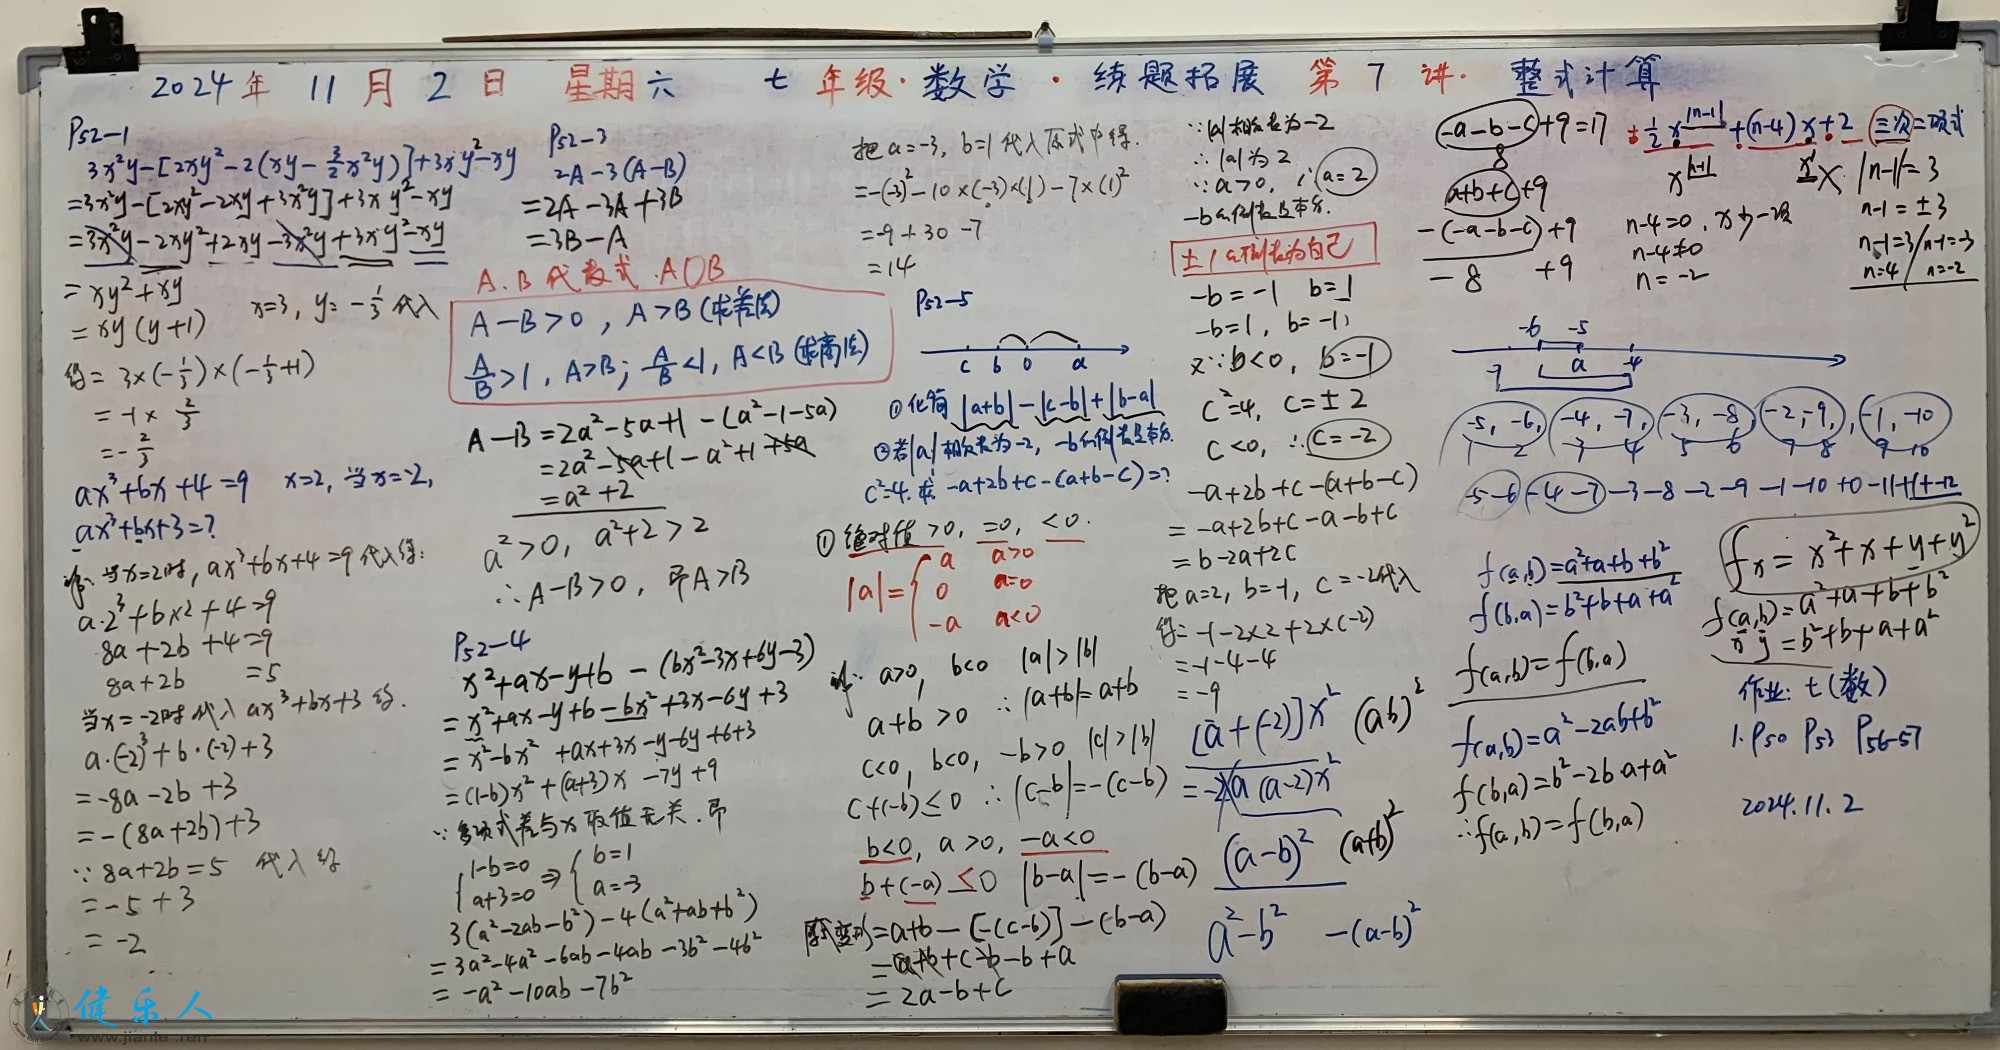 2024年 11月 2日 星期六 七年级·数学·练题拓展 第7讲·整式计算
P52-1
3x²y-[2xy²-2(xy-3/2x²y)]+3xy²-xy
=3x²y-[2xy²-2xy+3x²y]+3xy²-xy
=3x²y-2xy²+2xy-3x²y+3xy²-xy
=xy²+xy
=xy(y+1) x=3, y=-1/3代入
得= 3×(-1/3)×(-1/3+1)
=-1×2/3
=-2/3
ax³+bx+4=9 x=2, 当x=-2,
ax³+bx+3=?
解: 当x=2时, ax³+bx+4=9代入得:
a·2³+b×2+4=9
8a+2b+4=9
8a+2b =5
当x=-2时代入ax³+bx+3得.
a·(-2)³+b·(-2)+3
=-8a-2b+3
=-(8a+2b)+3
∵8a+2b=5 代入得
=-5+3
=-2
P52-3
2A-3(A-B)
=2A-3A+3B
=3B-A
A.B代数式.A()B
A-B>0, A>B(求差法)
A/B>1, A>B; A/B<1, A<B(求商法)
A-B=2a²-5a+1-(a²-1-5a)
=2a²-5a+1-a²+1+5a
=a²+2
a²>0, a²+2>2
∴A-B>0, 即A>B
P52-4
x²+ax-y+b-(bx²-3x+6y-3)
=x²+ax-y+b-bx²+3x-6y+3
=x²-bx²+ax+3x-y-6y+b+3
=(1-b)x²+(a+3)x-7y+9
∵多项式差与x取值无关.即
{1-b=0 ⇒ {b=1
a+3=0 a=-3
3(a²-2ab-b²)-4(a²+ab+b²)
=3a²-4a²-6ab-4ab-3b²-4b²
=-a²-10ab-7b²
把a=-3, b=1代入原式中得.
=-(-3)²-10×(-3)×(1)-7×(1)²
=-9+30-7
=14
P52-5
c b 0 a
①化简|a+b|-|c-b|+|b-a|
②若|a|相反数为-2, -b的倒数是本身.
c²=4. 求 -a+2b+c-(a+b-c)=?
①绝对值>0, =0, <0.
|a|={a a>0
0 a=0
-a a<0
解: a>0, b<0 |a|>|b|
a+b>0 ∴|a+b|=a+b
c<0, b<0, -b>0 |c|>|b|
c+(-b)≤0 ∴|c-b|=-(c-b)
b<0, a>0, -a<0
b+(-a)≤0 |b-a|=-(b-a)
原式变形=a+b-[-(c-b)]-(b-a)
=a+b+c-b-b+a
=2a-b+c
∵|a|相反数为-2
∴|a|为2
∵a>0, ∴a=2
-b的倒数是本身.
±1的倒数为自己
-b=-1 b=1
-b=1, b=-1,
又∵b<0, b=-1
c²=4, c=±2
c<0, ∴c=-2
-a+2b+c-(a+b-c)
=-a+2b+c-a-b+c
=b-2a+2c
把a=2, b=-1, c=-2代入
得=-1-2×2+2×(-2)
=-1-4-4
=-9
[a+(-2)]x² (ab)²
=-2(a (a-2)x²
(a-b)² (a+b)²
a²-b² -(a-b)²
-a-b-c+9=17
8
a+b+c+9
-(-a-b-c)+9
-8 +9
±1/2x^|n-1|+(n-4)x+2 三次三项式
x^|n-1| x¹ × |n-1|=3
n-4=0, x为一项 n-1=±3
n-4≠0 n-1=3/n-1=-3
n=-2 n=4/n=-2
-6 -5
-7 a -4
-5, -6, -4, -7, -3, -8, -2, -9, -1, -10
1 2 3 4 5 6 7 8 9 10
-5-6-4-7-3-8-2-9-1-10+0-11+1+-12
f(a,b)=a²+a+b+b²
f(b,a)=b²+b+a+a²
f(a,b)=f(b,a)
f(a,b)=a²-2ab+b²
f(b,a)=b²-2b·a+a²
∴f(a,b)=f(b,a)
fx=x²+x+y+y²
f(a,b)=a²+a+b+b²
x y =b²+b+a+a²
作业: 七(数)
1.P50 P53 P56-57
2024.11.2
健乐人
www.jianle.ren